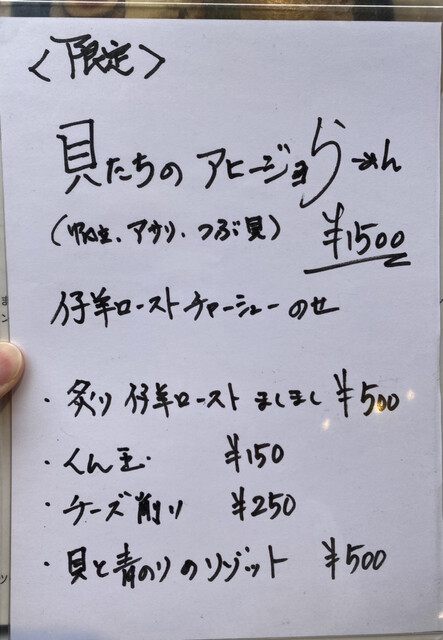 〈限定〉
貝たちのアヒージョらーめん
(帆立、アサリ、つぶ貝) ¥1500
仔羊ローストチャーシューのせ
・炙り仔羊ローストましまし ¥500
・くん玉 ¥150
・チーズ削り ¥250
・貝と青のりのリゾット ¥500